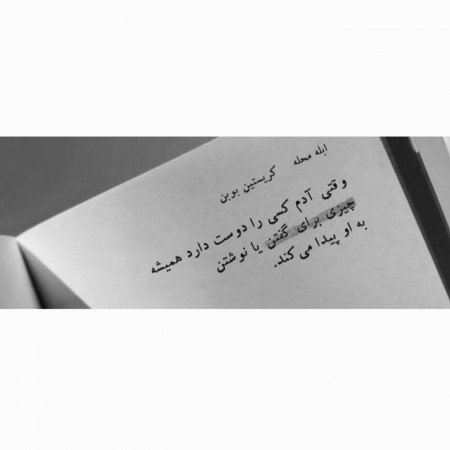 ابله محله   کریستین بوبن
وقتی آدم کسی را دوست دارد همیشه
چیزی برای گفتن یا نوشتن
به او پیدا می کند.